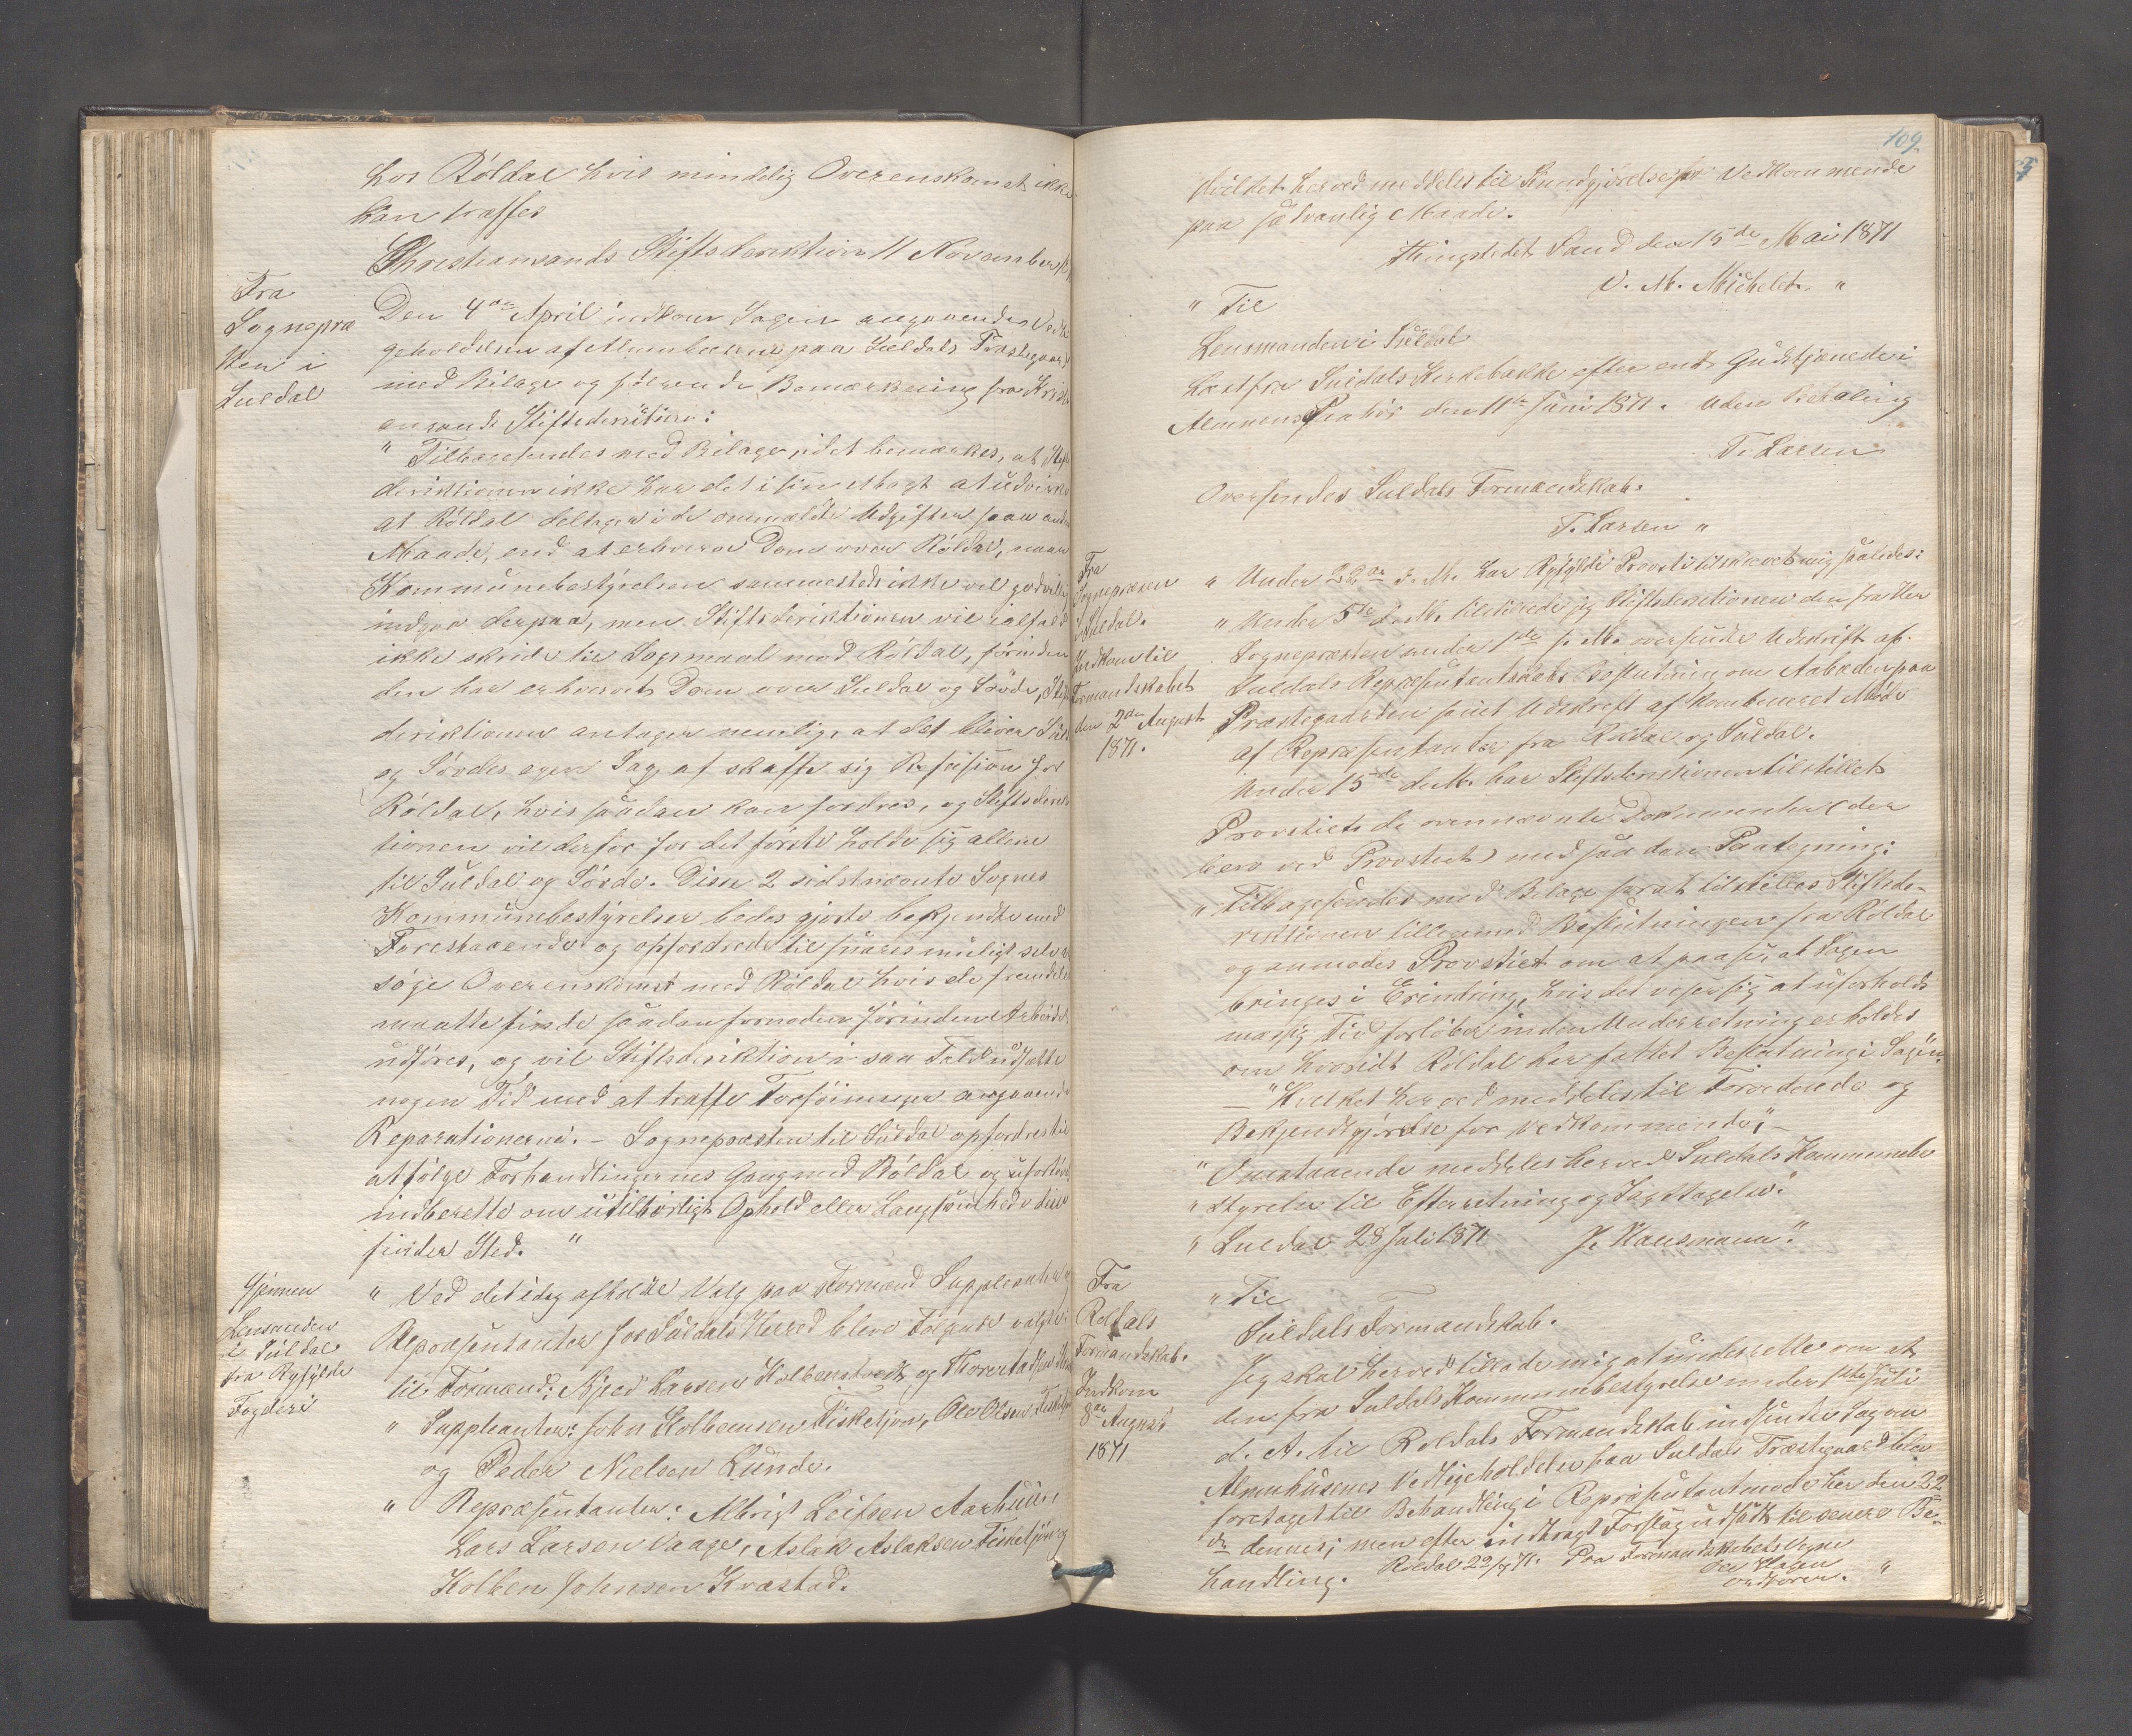 hos Röldal hvis mindelig Overenskomst ikke
kan træffes
Christiansands Stiftsdirektion 11 November
Fra
Sognepræ
sten i
Suldal
Den 4de April indkom Sagen angaaende Vedli
geholdelsen af Almuehusene paa Suldals Præstegaard
med Bilage og følgende Bemærkning fra Kristi
ansands Stiftsdirektion:
" Tilbagesendes med Bilage, idet bemærkes, at Stifts
direktionen ikke har det i sin Magt at udvirke
at Röldal deltager i de ommældte Udgifter paa anden
Maade, end at erhverve Dom over Röldal, naar
Kommunebestyrelsen sammesteds ikke vil godvillig
indgaa derpaa, men Stiftsdirektionen vil ialfald
ikke skride til Sögsmaal mod Röldal, förinden
den har erhvervet Dom over Suldal og Sövde, Stifts
direktionen antager nemlig, at det bliver Suldal
og Sövdes egen Sag at skaffe sig Refusion hos
Röldal, hvis saadan kan fordres, og Stiftsdirek
tionen vil derfor for det förste holde sig allene
til Suldal og Sövde. Disse 2 sidstnævnte Sognes
Kommunebestyrelser bedes gjorte bekjendte med
Forestaaende og opfordrede til snarest muligt selv at
söge Overenskomst med Röldal hvis de fremdeles
maatte finde saadan fornöden förinden Arbeidet
udföres, og vil Stiftsdirektion i saa Fald udsætte
nogen Tid med at træffe Forföininger angaaende
Reparationerne. - Sognepresten til Suldal opfordres til
at fölge Forhandlingernes Gang med Röldal og ufortövet
indberette om utilbörligt Ophold eller Langsomhed deri
finder Sted. "
Gjennem
Lensmanden
i Suldal
fra Ryfylke
Fogderi
" Ved det idag afholdte Valg paa Formænd Suppleanter og
Repræsentanter for Suldals Herred bleve Fölgende valgte:
til Formænd: Njæd Larsen Kolbenstvedt og
" Suppleanter: John Kolbeinsen Fisketjön, Ole Olsen
og Peder Nielsen Lunde.
" Repræsentanter: Albrigt Leifsen Aarhuus,
Lars Larsen Vaage, Aslak Aslaksen Fisketjön og
Kolben Johnsen Kvæstad.
109
Hvilket herved meddeles til Kundgjörelse for Vedkommende
paa sædvanlig Maade.
Thingstedet Sand den 15de Mai 1871
V. M. Michelet. "
" Til
Lensmanden i Suldal
Læst fra Suldals Kirkebakke efter endt Gudstjeneste i
Almuens Paahör den 11te Juni 1871. Uden Betaling
T. Larsen
Oversendes Suldals Formandskab.
T. Larsen "
Fra
Sognepræsten
i Suldal.
Indkom til
Formandskabet
den 2den August
1871.
" Under 22de d. M. har Ryfylke Provsti tilskrevet mig saaledes:
" Under 5te d. M. tilstillede jeg Stiftsdirektionen den fra Hr
Sognepræsten under 1ste s. M. oversendte Udskrift af
Suldals Repræsentantskabs Beslutning om Aaboden paa
Præstegaarden samt Udskrift af kombineret Möde
af Repræsentanter fra Röldal og Suldal.
Under 15de d. M. har Stiftsdirektionen tilstillet
Provstiet de ovennævnte Dokumenter (der
bero ved Provstiet) med saadan Paategning:
" Tilbagesendes med Bilage for at tilstilles Stiftsdi-
rektionen tillemed Beslutningen fra Röldal
og anmodes Provstiet om at paase, at Sagen
bringes i Erindring, hvis det viser sig at uforholds
mæssig Tid forlöber inden Underretning erholdes
om hvorvidt Röldal har fattet Beslutning i Sagen.
- "Hvilket herved meddeles til Foreteende og
Bekjendtgjörelse for Vedkommende", -
" Ovenstaaende meddeles herved Suldals Kommunebe
" styrelse til Efterretning og Iagttagelse.
" Suldal 28 Juli 1871 J. Hausmann."
Fra
Roldals
Formandskab.
Indkom
8de August
1871
" Til
Suldals Formandskab.
Jeg skal herved tillade mig at underrette om at
den fra Suldals Kommunebestyrelse under 1ste Juli
d. A. til Roldals Formandskab indsendte Sag om
Almuhusenes Vedligeholdelse paa Suldals Præstegaard blev
foretaget til Behandling i Repræsentantmöde her den 22
de dennes; men efter indbragt Forslag udsatt til senere Be-
handling. Roldal 22/7 71. Paa Formandskabets Vegne
Ole
Ordförer. "